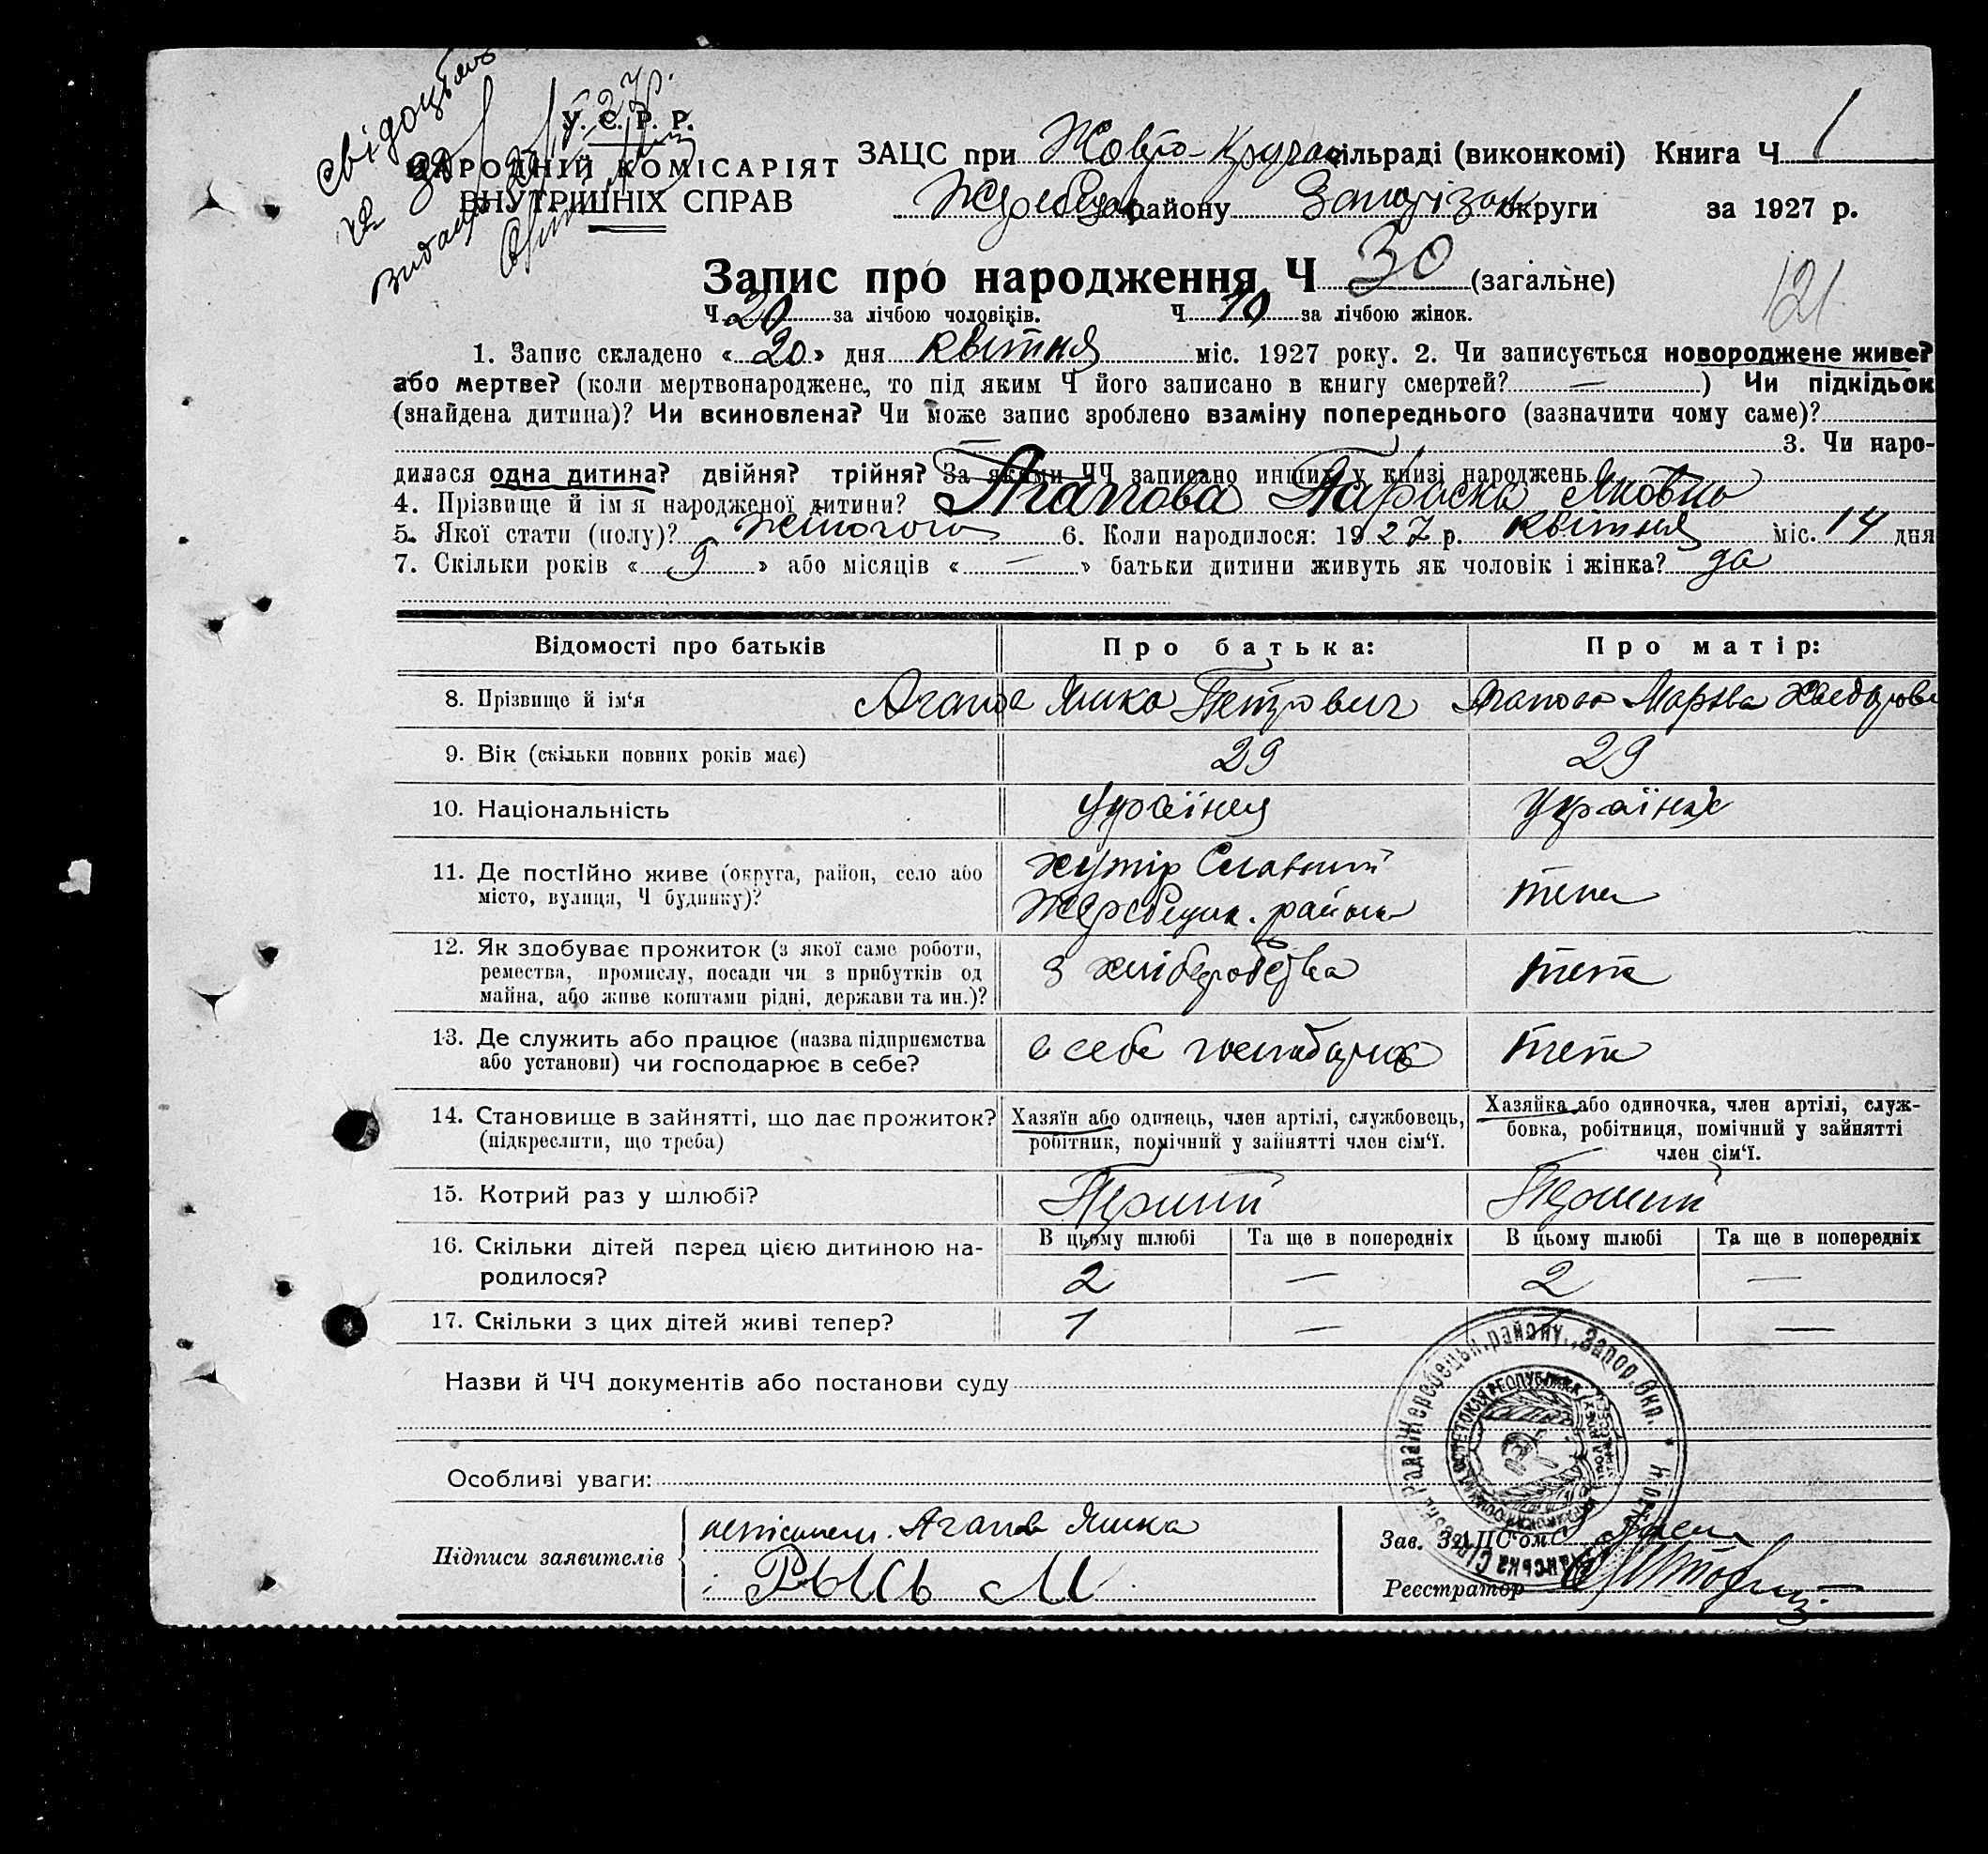 Свідоцтво
№ 30
У. С. Р. Р.
НАРОДНІЙ КОМІСАРІЯТ
ВНУТРІШНІХ СПРАВ
ЗАЦС при Жовто-Круча сільраді (виконкомі) Книга Ч 1
Жеребец району Запоріз округи за 1927 р.
Запис про народження Ч 30 (загальне)
121
Ч 20 за лічбою чоловіків. Ч 10 за лічбою жінок.
1. Запис складено « 20 » дня квітня міс. 1927 року. 2. Чи записується новороджене живе?
або мертве? (коли мертвонароджене, то під яким Ч його записано в книгу смертей? — ) Чи підкідьок
(знайдена дитина)? Чи всиновлена? Чи може запис зроблено взаміну попереднього (зазначити чому саме)?
— 3. Чи наро-
дилася одна дитина? двійня? трійня? За якими ЧЧ записано инших у книзі народжень
4. Прізвище й ім'я народженої дитини? Агапова Параска Яковна
5. Якої стати (полу)? жіночого 6. Коли народилося: 1927 р. квітня міс. 14 дня
7. Скільки років « 9 » або місяців « — » батьки дитини живуть як чоловік і жінка? да
Відомості про батьків Про батька: Про матір:
8. Прізвище й ім'я Агапов Яшка Петрович Агапова Марфа
9. Вік (скільки повних років має) 29 29
10. Національність Українец Українка
11. Де постійно живе (округа, район, село або
місто, вулиця, Ч будинку)? хутір Славний
Жеребецьк. району теж
12. Як здобуває прожиток (з якої саме роботи,
ремества, промислу, посади чи з прибутків од
майна, або живе коштами рідні, держави та ин.)? з хліборобства теж
13. Де служить або працює (назва підприємства
або установи) чи господарює в себе? в себе теж
14. Становище в зайнятті, що дає прожиток?
(підкреслити, що треба)
Хазяїн або одинець, член артілі, службовець,
робітник, помічний у зайнятті член сім'ї.
Хазяйка або одиночка, член артілі, служ-
бовка, робітниця, помічний у зайнятті
член сім'ї.
15. Котрий раз у шлюбі? Перший Перший
16. Скільки дітей перед цією дитиною на-
родилося?
В цьому шлюбі Та ще в попередніх В цьому шлюбі Та ще в попередніх
2 — 2 —
17. Скільки з цих дітей живі тепер? 1 — —
Назви й ЧЧ документів або постанови суду
Особливі уваги:
Підписи заявителів
Агапов Яшка
Рысь М
Зав. ЗАЦС'ом
Реєстратор
Рада Жеребецьк. району, Запор. Окп.